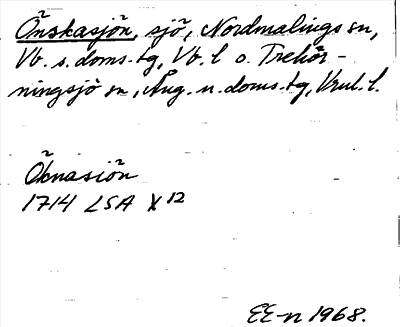 Önskasjön, sjö, Nordmalings sn,
Vb. s. doms.-tg, Vb. l o. Trehör-
ningsjö sn, Ång. n. doms.-tg, Vnul. l.
Öknasiön
1714 LSA X 12
EE-n 1968.